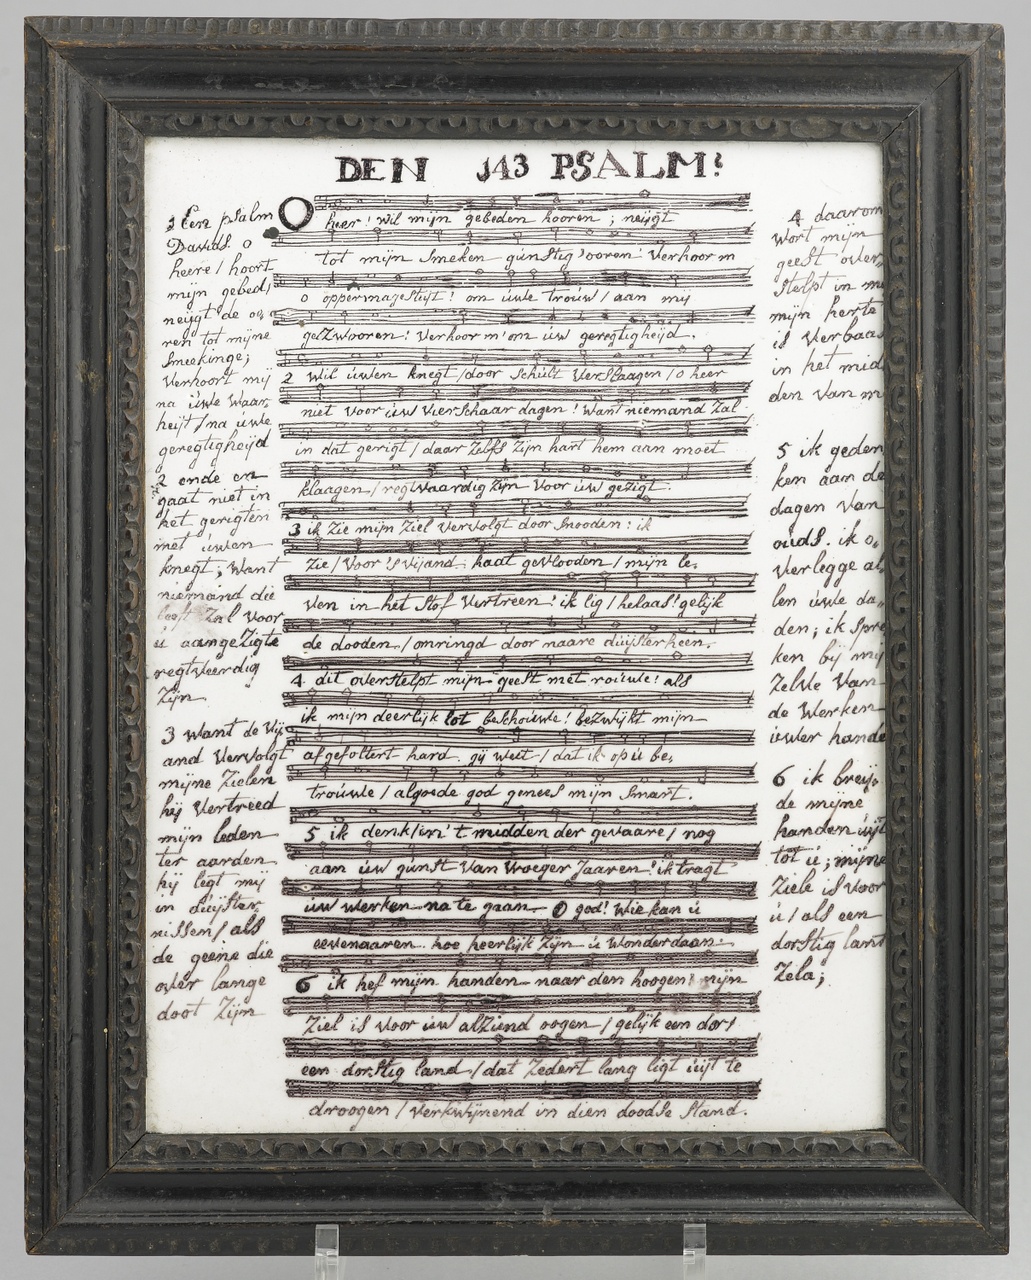 DEN 143 PSALM:
1 Een psalm
Davids. o
heere / hoort
mijn gebed /
neijgt de oo,
ren tot mijne
Smeekinge;
Verhoort mij
na úwe waar,
heijt / na úwe
geregtigheijd
2 ende en
gaat niet in
het gerigten
met úwen
knegt; Want
niemand die
leeft Zal voor
ú aangeZigte
regtveerdig
Zijn
3 want de Vij
and Vervolgt
mijne Zielen
hij Vertreed
mijn leden
ter aarden
hij legt mij
in dúijster,
nissen / als
de geene die
over lange
doot Zijn
O heer! wil mijn gebeden hooren; neijgt
tot mijn Smeken gúnstig' ooren: Verhoor m
o oppermajesteijt! om úwe troúw / aan mij
geZwooren! Verhoor m'om úw geregtigheijd.
2 Wil úwen knegt / door Schúlt VerSlaagen / o heer
niet voor úw VierSchaar dagen! Want niemand Zal
in dat gerigt / daar Zelfs Zijn hart hem aan moet
klaagen / regtWaardig Zijn voor úw gezigt.
3 ik Zie mijn Ziel vervolgt door Snooden: ik
Zie / Voor 's Vijand haat gevlooden / mijn le,
ven in het Stof Vertreen! ik lig / helaas! gelijk
de dooden / omringd door naare dúijsterheen.
4 dit overstelpt mijn geest met roúwe! als
ik mijn deerlijk lot beschoúwe! beZwijkt mijn
afgefoltert hard. gij weet / dat ik op ú be,
troúwe / algoede god genees mijn Smart.
5 ik denk / in 't midden der gevaare / nog
aan úw gúnst Van Vroeger Jaaren! ik tragt
úw werken na te gaan O god! Wie kan ú
eevenaaren. hoe heerlijk Zijn ú Wonderdaan.
6 ik hef mijn handen naar den hoogen! mijn
Ziel is voor úw alZiend oogen / gelijk een dor /
een dorstig land / dat Zedert lang ligt úijt te
droogen / Verkwijnend in dien doodse Stand.
4 daarom
Wort mijn
geest over,
Stelpt in m
mijn herte
is Verbaas
in het mid
den Van m
5 ik geden
ken aan de
dagen Van
oúds. ik o,
Verlegge al
len úwe da,
den; ik Spre
ken bij mij
Zelve Van
de Werken
úwer hande
6 ik breij,
de mijne
handen úijt
tot ú; mijne
Ziele is Voor
ú / als een
dorstig lant
Zela;